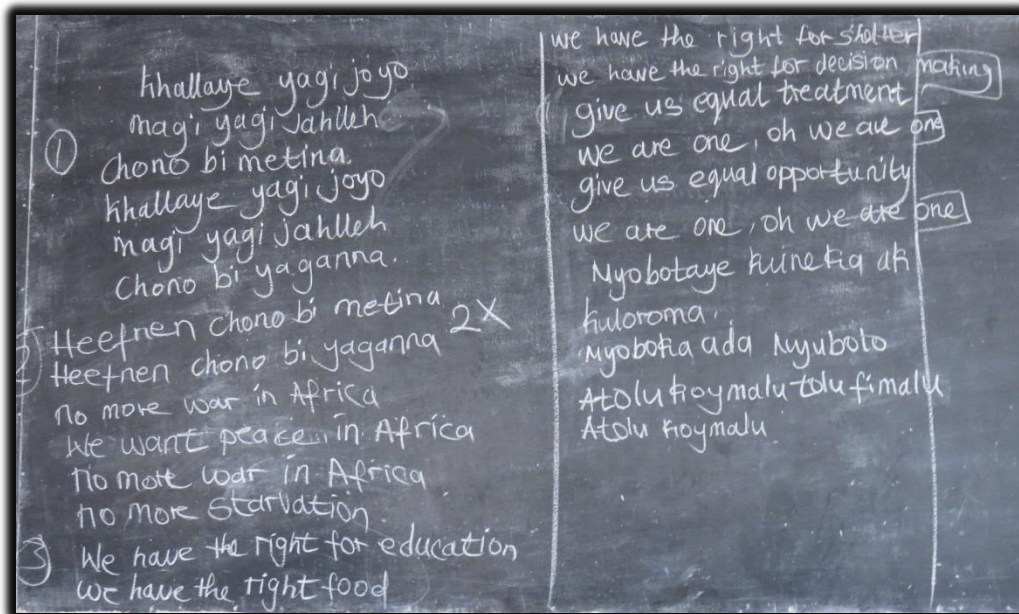 ①
khallaye yagi joyo
magi yagi jahlleh
chono bi metina.
khallaye yagi joyo
magi yagi jahlleh
chono bi yaganna.
Heefnen chono bi metina 2X
Heefnen chono bi yaganna
no more war in Africa
We want peace in Africa
no more war in Africa
no more starvation
③ We have the right for education
we have the right food
we have the right for shelter
we have the right for decision making
give us equal treatment
we are one, oh we are one
give us equal opportunity
we are one, oh we are one
Nyobotaye kunekia ak
kuloroma.
Nyoboka ada Nyuboto
Atolu koymalu tolu fimalu
Atolu koymalu